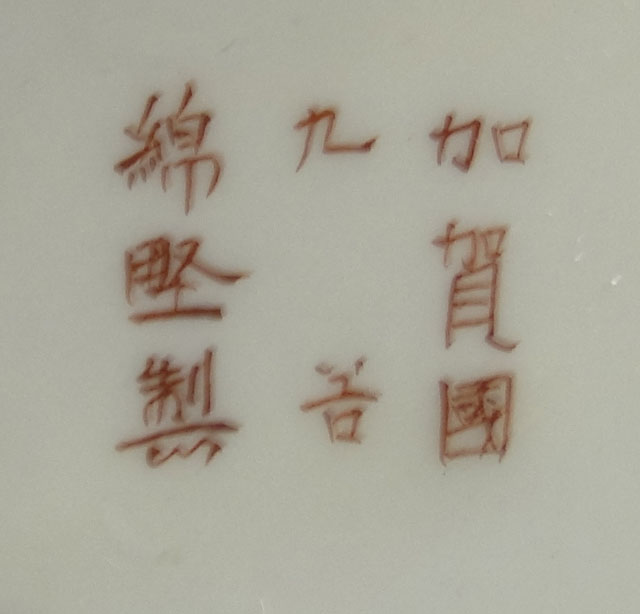 加賀國
九谷
綿野製